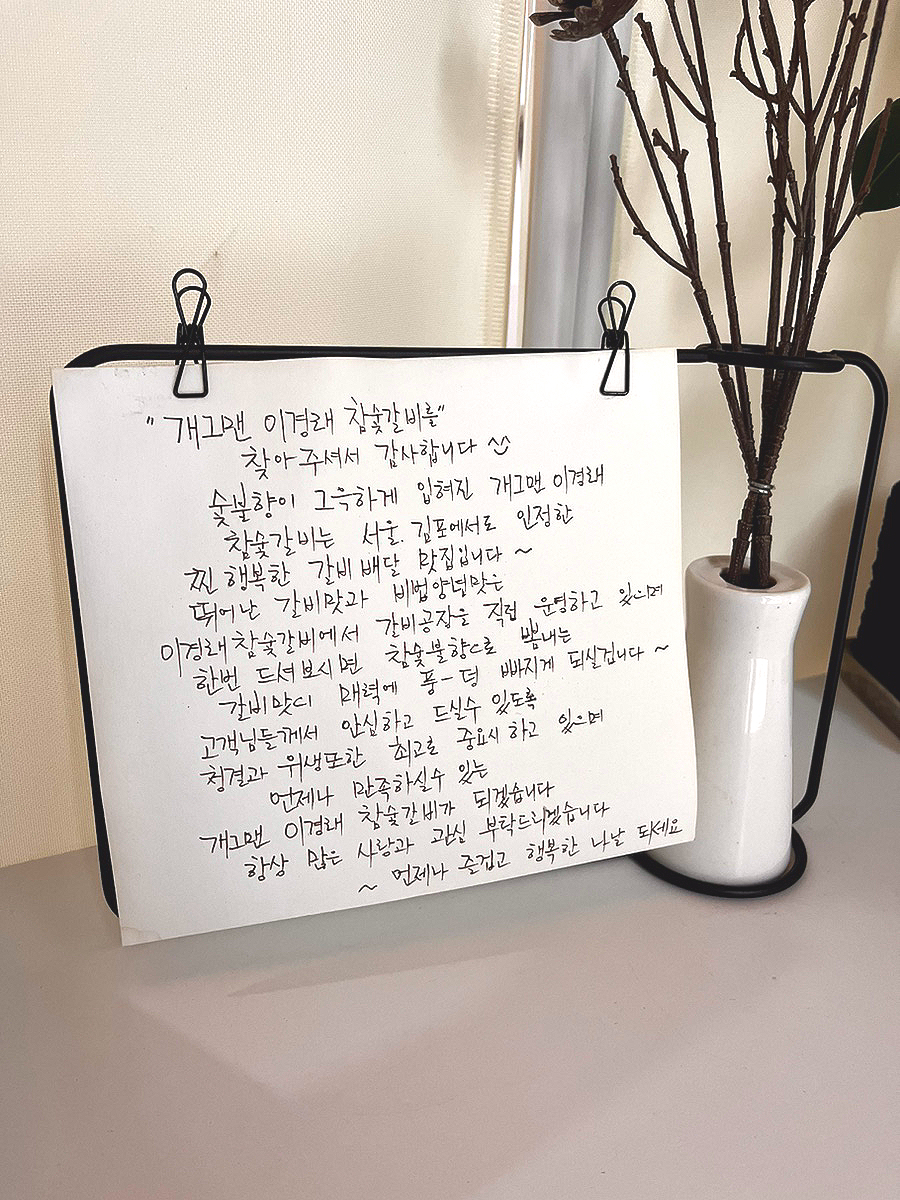 "개그맨 이경래 참숯갈비를"
찾아주셔서 감사합니다
숯불향이 그윽하게 입혀진 개그맨 이경래
참숯갈비는 서울.김포에서도 인정한
찐 행복한 갈비 배달 맛집입니다 ~
뛰어난 갈비맛과 비법양념맛은
이경래참숯갈비에서 갈비공장을 직접 운영하고 있으며
한번 드셔보시면 참숯불향으로 뽐내는
갈비맛의 매력에 풍-덩 빠지게 되실겁니다 ~
고객님들께서 안심하고 드실수 있도록
청결과 위생또한 최고로 중요시 하고 있으며
언제나 만족하실수 있는
개그맨 이경래 참숯갈비가 되겠습니다
항상 많은 사랑과 관심 부탁드리겠습니다
~ 언제나 즐겁고 행복한 나날 되세요